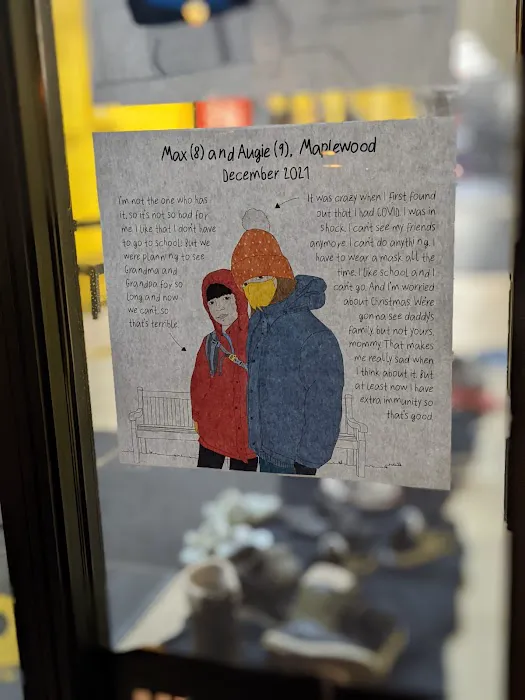 Max (8) and Augie (9), Maplewood
December 2021
I'm not the one who has
it, so it's not so bad for
me. I like that I don't have
to go to school. But we
were planning to see
Grandma and
Grandpa for so
long and now
we can't so
that's terrible.
It was crazy when I first found
out that I had COVID. I was in
shock. I can't see my friends
anymore. I can't do anything. I
have to wear a mask all the
time. I like school and I
can't go. And I'm worried
about Christmas. We're
gonna see daddy's
family but not yours,
mommy. That makes
me really sad when
I think about it. But
at least now I have
extra immunity so
that's good.